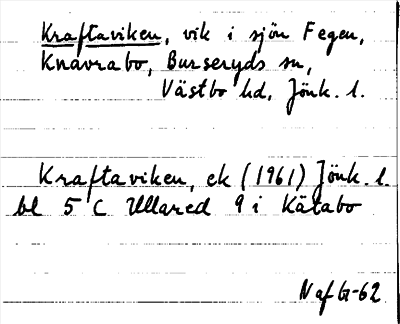 Kraftaviken, vik i sjön Fegen,
Knavrabo, Burseryds sn,
Västbo hd, Jönk. l.
Kraftaviken, ek (1961) Jönk. l.
bl 5 C Ullared 9 i Kätabo
N af G-62